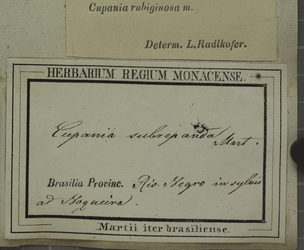 Cupania rubiginosa m.
Determ. L. Radlkofer.
HERBARIUM REGIUM MONACENSE.
Cupania subrepanda Mart.
Brasilia Provinc. Rio Negro in sylvis
ad Nogueira.
Martii iter brasiliense.